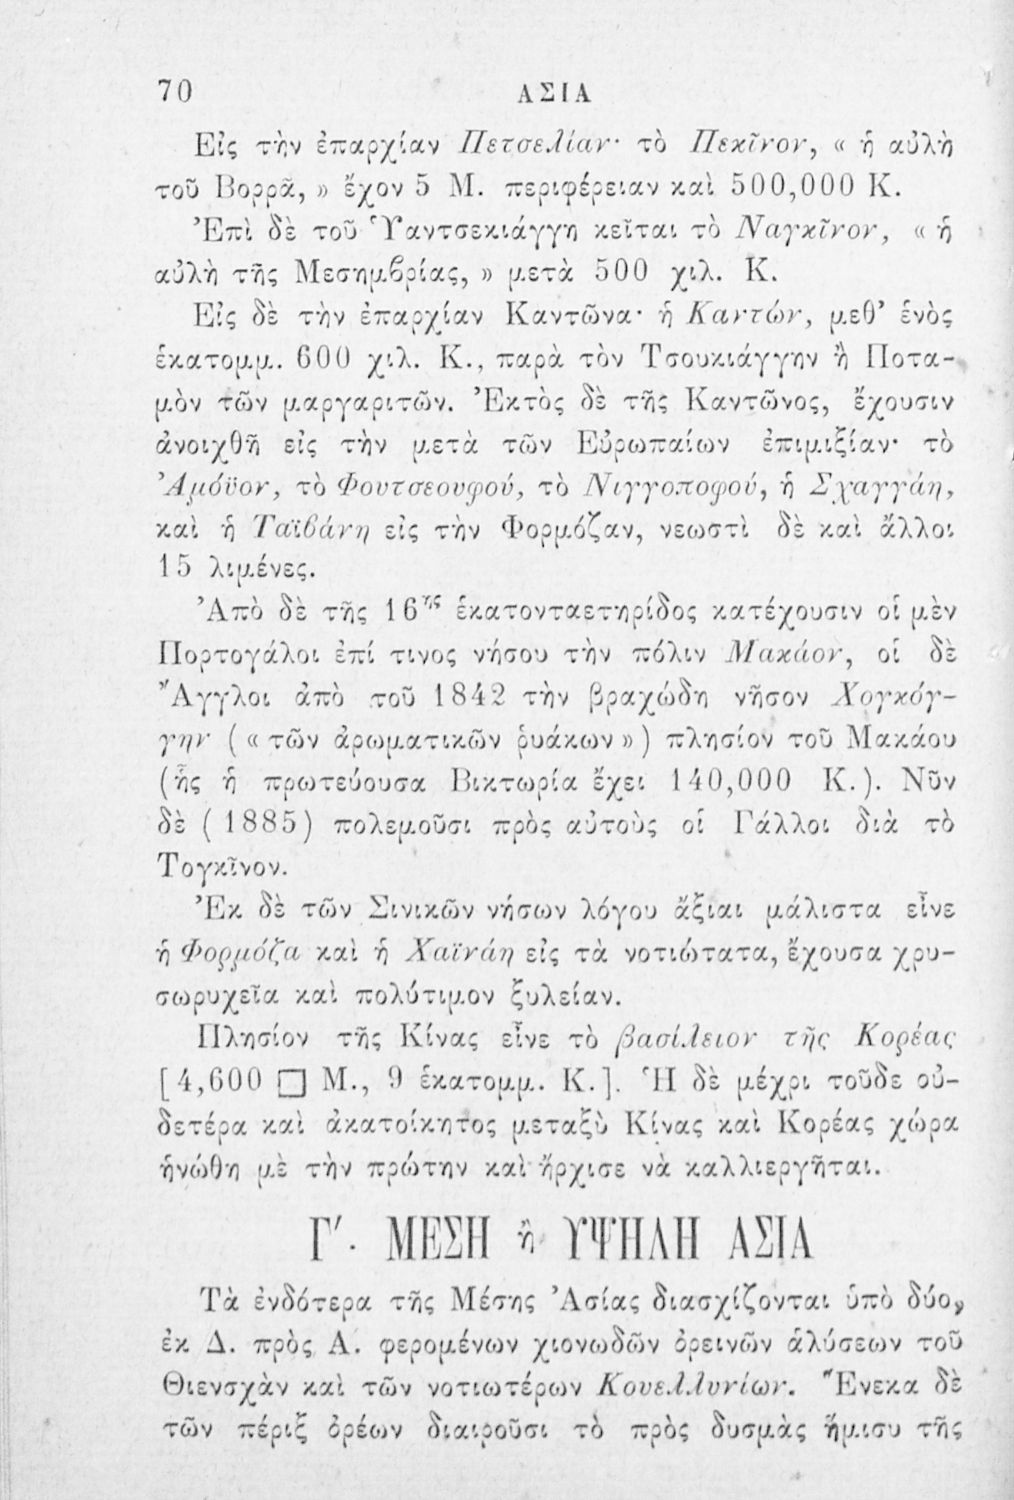 70 ΑΣΙΑ
Εἰς τὴν ἐπαρχίαν Πετσελίαν· τὸ Πεκῖνον, « ἡ αὐλὴ
τοῦ Βορρᾶ, » ἔχον 5 Μ. περιφέρειαν καὶ 500,000 Κ.
Ἐπὶ δὲ τοῦ Ὑαντσεκιάγγη κεῖται τὸ Ναγκῖνον, « ἡ
αὐλὴ τῆς Μεσημβρίας, » μετὰ 500 χιλ. Κ.
Εἰς δὲ τὴν ἐπαρχίαν Καντῶνα· ἡ Καντών, μεθ’ ἑνὸς
ἑκατομμ. 600 χιλ. Κ., παρὰ τὸν Τσουκιάγγην ἢ Ποτα-
μὸν τῶν μαργαριτῶν. Ἐκτὸς δὲ τῆς Καντῶνος, ἔχουσιν
ἀνοιχθῆ εἰς τὴν μετὰ τῶν Εὐρωπαίων ἐπιμιξίαν· τὸ
Ἀμόϋον, τὸ Φουτσεουφού, τὸ Νιγγοποφού, ἡ Σχαγγάη,
καὶ ἡ Ταϊβάνη εἰς τὴν Φορμόζαν, νεωστὶ δὲ καὶ ἄλλοι
15 λιμένες.
Ἀπὸ δὲ τῆς 16ης ἑκατονταετηρίδος κατέχουσιν οἱ μὲν
Πορτογάλοι ἐπί τινος νήσου τὴν πόλιν Μακάον, οἱ δὲ
Ἄγγλοι ἀπὸ τοῦ 1842 τὴν βραχώδη νῆσον Χογκόγ-
γην ( « τῶν ἀρωματικῶν ῥυάκων » ) πλησίον τοῦ Μακάου
(ἧς ἡ πρωτεύουσα Βικτωρία ἔχει 140,000 Κ.). Νῦν
δὲ ( 1885) πολεμοῦσι πρὸς αὐτοὺς οἱ Γάλλοι διὰ τὸ
Τογκῖνον.
Ἐκ δὲ τῶν Σινικῶν νήσων λόγου ἄξιαι μάλιστα εἶνε
ἡ Φορμόζα καὶ ἡ Χαϊνάη εἰς τὰ νοτιώτατα, ἔχουσα χρυ-
σωρυχεῖα καὶ πολύτιμον ξυλείαν.
Πλησίον τῆς Κίνας εἶνε τὸ βασίλειον τῆς Κορέας
[4,600 □ Μ., 9 ἑκατομμ. Κ.]. Ἡ δὲ μέχρι τοῦδε οὐ-
δετέρα καὶ ἀκατοίκητος μεταξὺ Κίνας καὶ Κορέας χώρα
ἡνώθη μὲ τὴν πρώτην καὶ ἤρχισε νὰ καλλιεργῆται.
Γ′. ΜΕΣΗ ἢ ΥΨΗΛΗ ΑΣΙΑ
Τὰ ἐνδότερα τῆς Μέσης Ἀσίας διασχίζονται ὑπὸ δύο,
ἐκ Δ. πρὸς Α. φερομένων χιονωδῶν ὀρεινῶν ἁλύσεων τοῦ
Θιενσχὰν καὶ τῶν νοτιωτέρων Κουελλυνίων. Ἕνεκα δὲ
τῶν πέριξ ὀρέων διαιροῦσι τὸ πρὸς δυσμὰς ἥμισυ τῆς